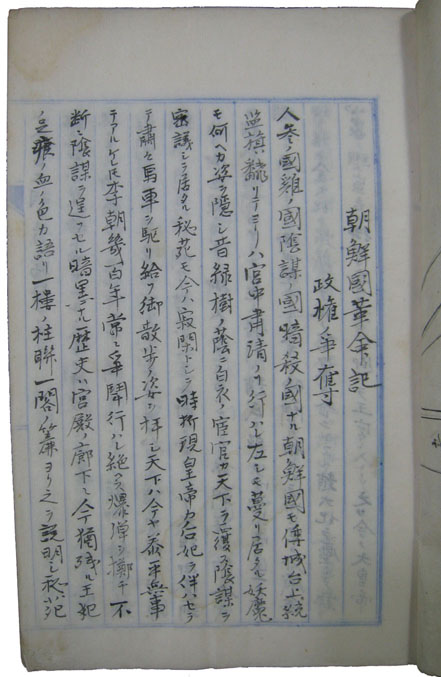 朝鮮國革命記
政權爭奪
人参ノ國雞ノ國陰謀ノ國暗殺ノ國ナル朝鮮國モ倭城台上統
監旗飜リテヨリハ宮中肅清ノ行ハレ左シモ蔓リ居タル妖魔
モ何ヘカ姿ヲ隠シ昔緑樹ノ蔭ニ白衣ノ宦官カ天下ヲ覆ス陰謀ヲ
密議シテ居タル秘苑モ今ハ寂閑トシテ時折現皇帝カ名妃ヲ伴ハセラ
テ肅々馬車ヲ駆リ給フ御散歩ノ姿ヲ拝シ天下ハ今ヤ泰平無事
テアルケレ氏李朝幾百年常ニ爭鬪行ハレ絶ヘス爆弾ヲ擲チ不
断ニ陰謀ヲ逞フセル暗黒ナル歴史ハ宮殿ノ廊下ニ今猶残ル王妃
ノ足痕ノ血ノ色カ語リ一楼柱聯一閣ノ簾ヨリ之ヲ説明シ秘苑